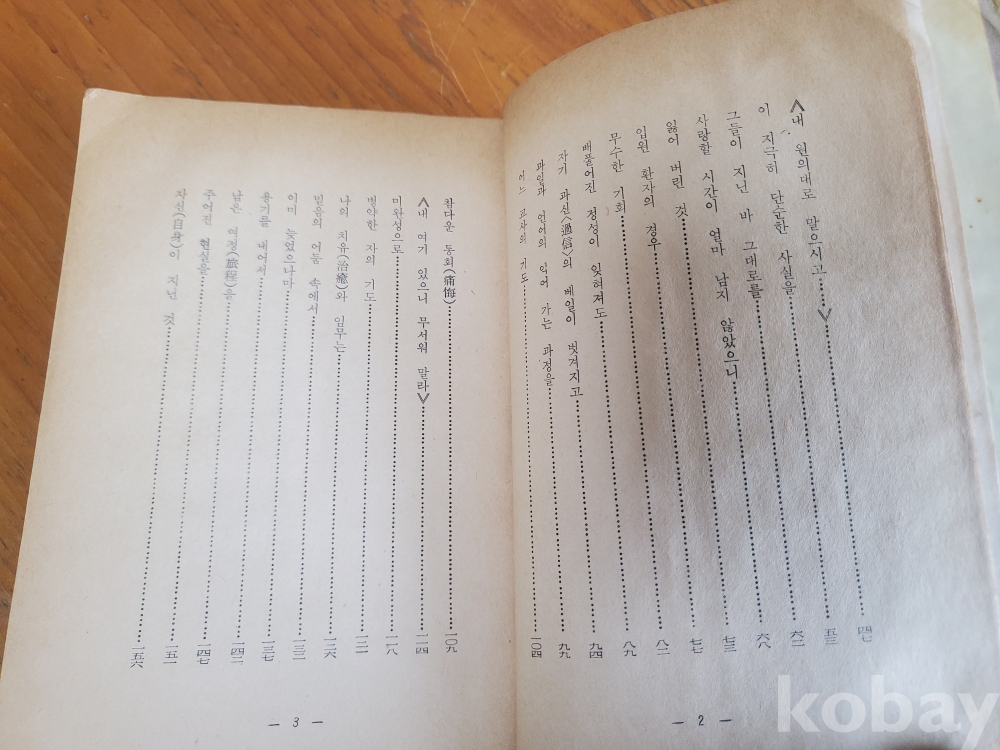 《내 원의대로 말으시고》……四七
이 지극히 단순한 사실을……五三
그들이 지닌 바 그대로를……六二
사랑할 시간이 얼마 남지 않았으니……六八
잃어 버린 것……七三
입원 환자의 경우……七七
무수한 기회……八二
베풀어진 정성이 잊혀져도……八九
자기 과신(過信)의 베일이 벗겨지고……九四
과일과 언어의 익어 가는 과정을……九九
어느 교사의 기도……一〇四
— 2 —
참다운 통회(痛悔)……一〇九
《내 여기 있으니 무서워 말라》……一一四
미완성으로……一一八
병약한 자의 기도……一二二
나의 치유(治癒)와 임무는……一二六
믿음의 어둠 속에서……一三二
이미 늦었으나마……一三七
용기를 내어서……一四二
남은 여정(旅程)을……一四七
주어진 현실을……一五一
자신(自身)이 지닌 것……一五六
— 3 —
kobay